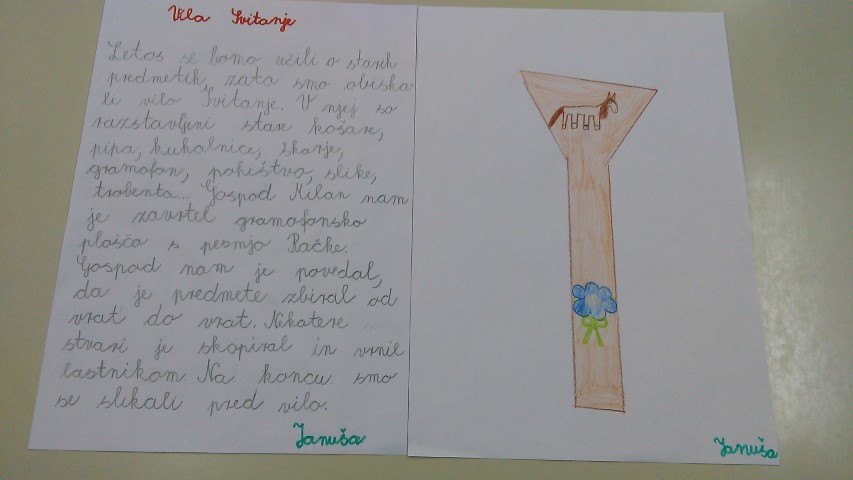 Vila Svitanje
Letos se bomo učili o starih
predmetih, zato smo obiska
li vilo Svitanje. V njej so
razstavljeni stare košare,
pipa, kuhalnice, škarje,
gramofon, pohištvo, slike,
trobenta... Gospod Milan nam
je zavrtel gramofonsko
ploščo s pesmjo Račke.
Gospod nam je povedal,
da je predmete zbiral od
vrat do vrat. Nekatere
stvari je skopiral in vrnil
lastnikom. Na koncu smo
se slikali pred vilo.
Januša
Januša